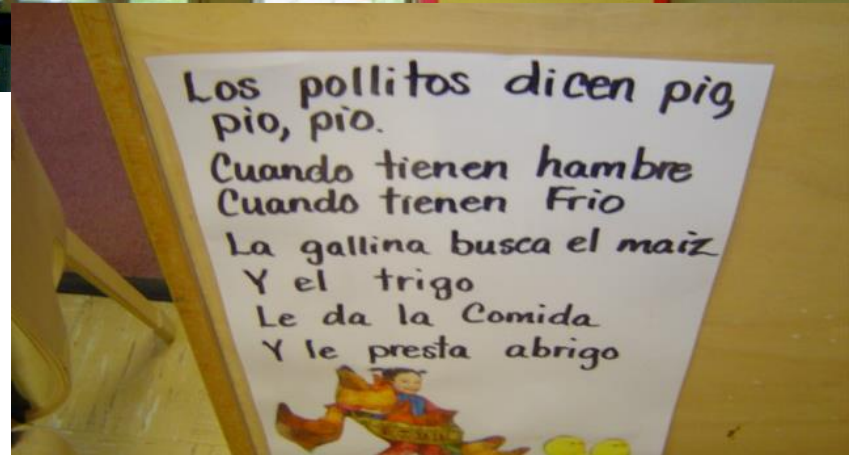 Los pollitos dicen pio,
pio, pio.
Cuando tienen hambre
Cuando tienen Frio
La gallina busca el maiz
Y el trigo
Le da la Comida
Y le presta abrigo